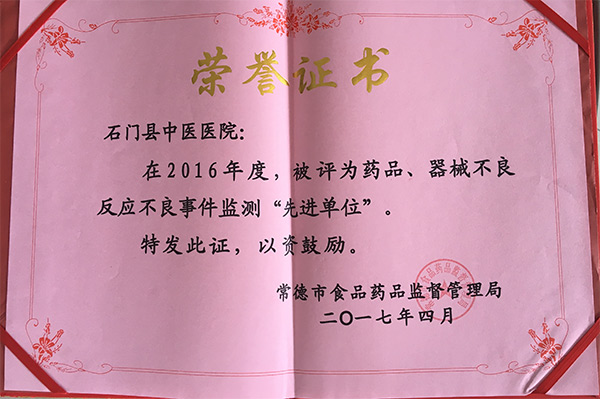 荣誉证书
石门县中医医院：
在2016年度，被评为药品、器械不良
反应不良事件监测“先进单位”。
特发此证，以资鼓励。
常德市食品药品监督管理局
二〇一七年四月